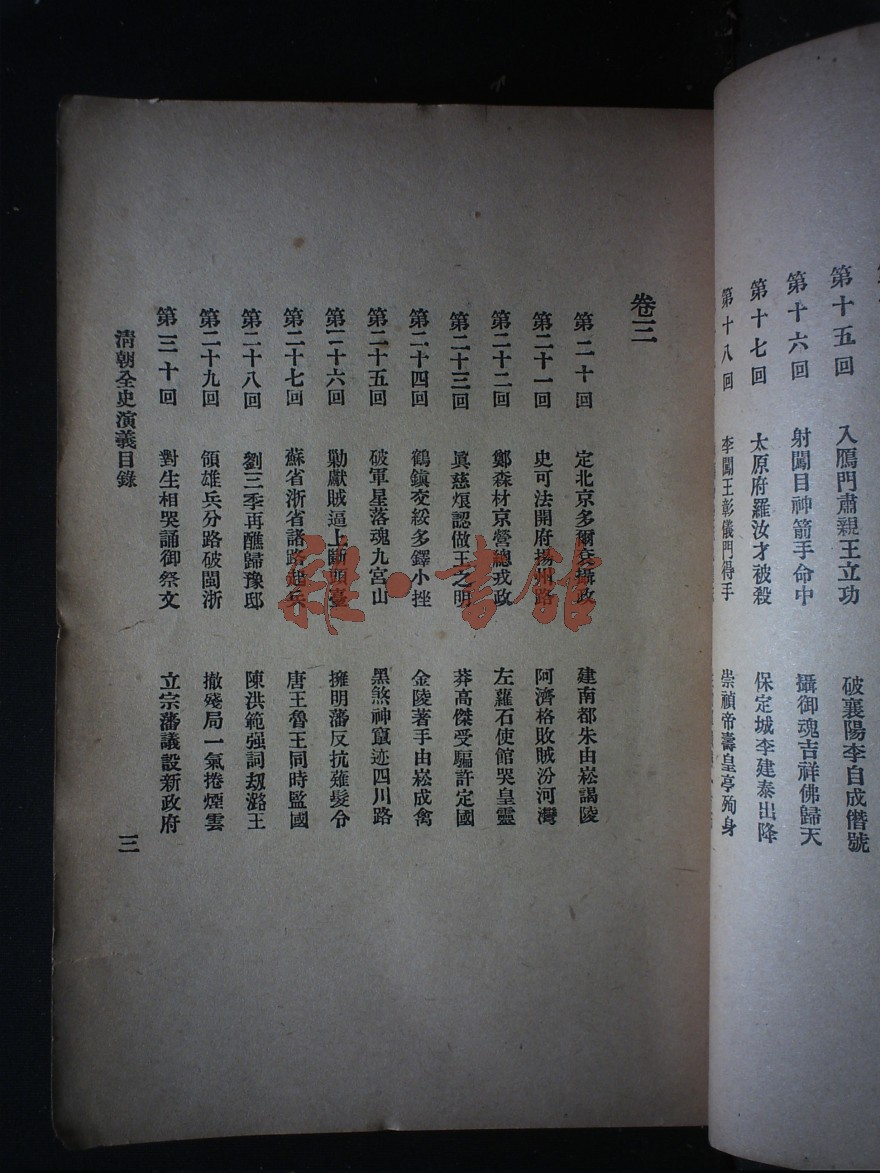 第十五回　入鴈門肅親王立功　破襄陽李自成僭號
第十六回　射闖目神箭手命中　攝御魂吉祥佛歸天
第十七回　太原府羅汝才被殺　保定城李建泰出降
第十八回　李闖王彰儀門得手　崇禎帝壽皇亭殉身
卷三
第二十回　定北京多爾袞攝政　建南都朱由崧謁陵
第二十一回　史可法開府揚州路　阿濟格敗賊汾河灣
第二十二回　鄭森材京營總戎政　左蘿石使館哭皇靈
第二十三回　眞慈烺認做王之明　莽高傑受騙許定國
第二十四回　鶴鎭交綏多鐸小挫　金陵著手由崧成禽
第二十五回　破軍星落魂九宮山　黑煞神竄迹四川路
第二十六回　勦獻賊逼上斷頭臺　擁明藩反抗薙髮令
第二十七回　蘇省浙省諸路起兵　唐王魯王同時監國
第二十八回　劉三季再醮歸豫邸　陳洪範强詞刼潞王
第二十九回　領雄兵分路破閩浙　撤殘局一氣捲煙雲
第三十回　對生相哭誦御祭文　立宗藩議設新政府
淸朝全史演義目錄　三
雜·書館